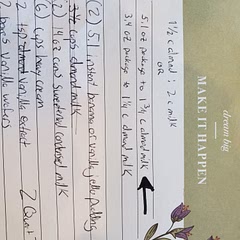 dream big
MAKE IT HAPPEN
1 1/2 c almd : 2 c milk
OR
5.1 oz package to 1 3/4 c almd milk
3.4 oz package to 1 1/4 c almd milk
(2) 5.1 instant banana or vanilla jello pudding
3 1/2 cups almd milk
(2) 14 oz cans sweetened condensed milk
(6) cups heavy cream
2 tsp vanilla extract 2 Quart
2 boxes vanilla wafers